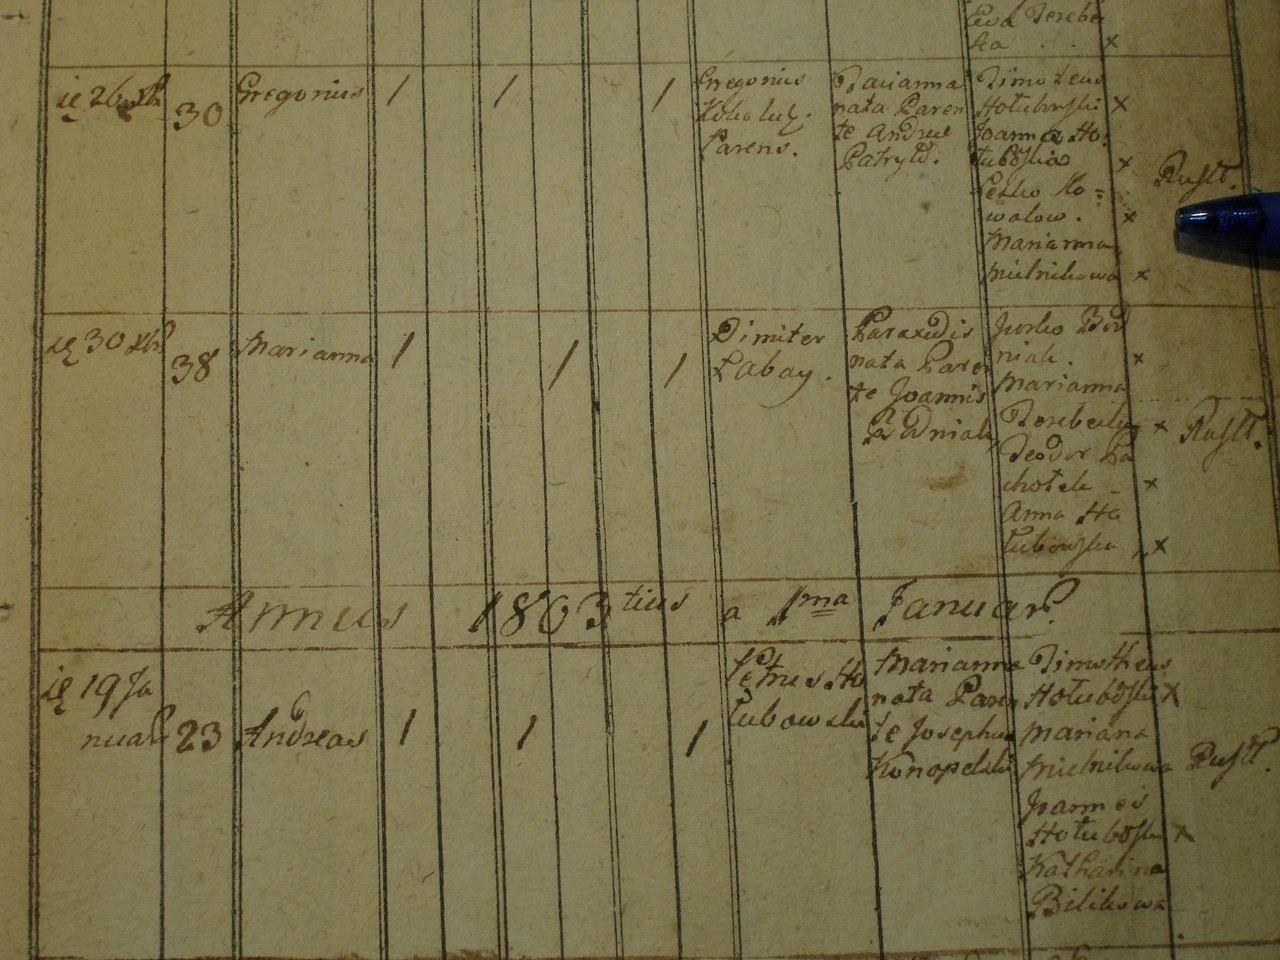 Ewa Derebe
cka . . x
26 30 Gregorius / / /
Gregorius
Parens.
Marianna
nata Paren
te Andrea
Patryld.
Timoteus
Hołubowski x
Joanna Ho:
łubowska x
Lesko Ko=
walow . x
Marianna
Mielnikowa x
Rustt.
30 38 Marianna / / /
Dimiter
Labay .
Paraxedis
nata Paren
te Joannis
Jurko Bod
niak . x
Marianna
x
Teodor Pa
chołek - x
Anna Ho
łubowska x
Rustt.
Annus 1803 tius a 1ma Januar.
19 Ja
nuar 23 Andreas / / /
Petrus Ho
łubowski
Marianna
nata Paren
te Josephus
Konopelski
Timotheus
Hołubowski x
Mariana
Mielnikowa
Joannes
Hołubowski x
Katharina
Bilikowa
Rustt.